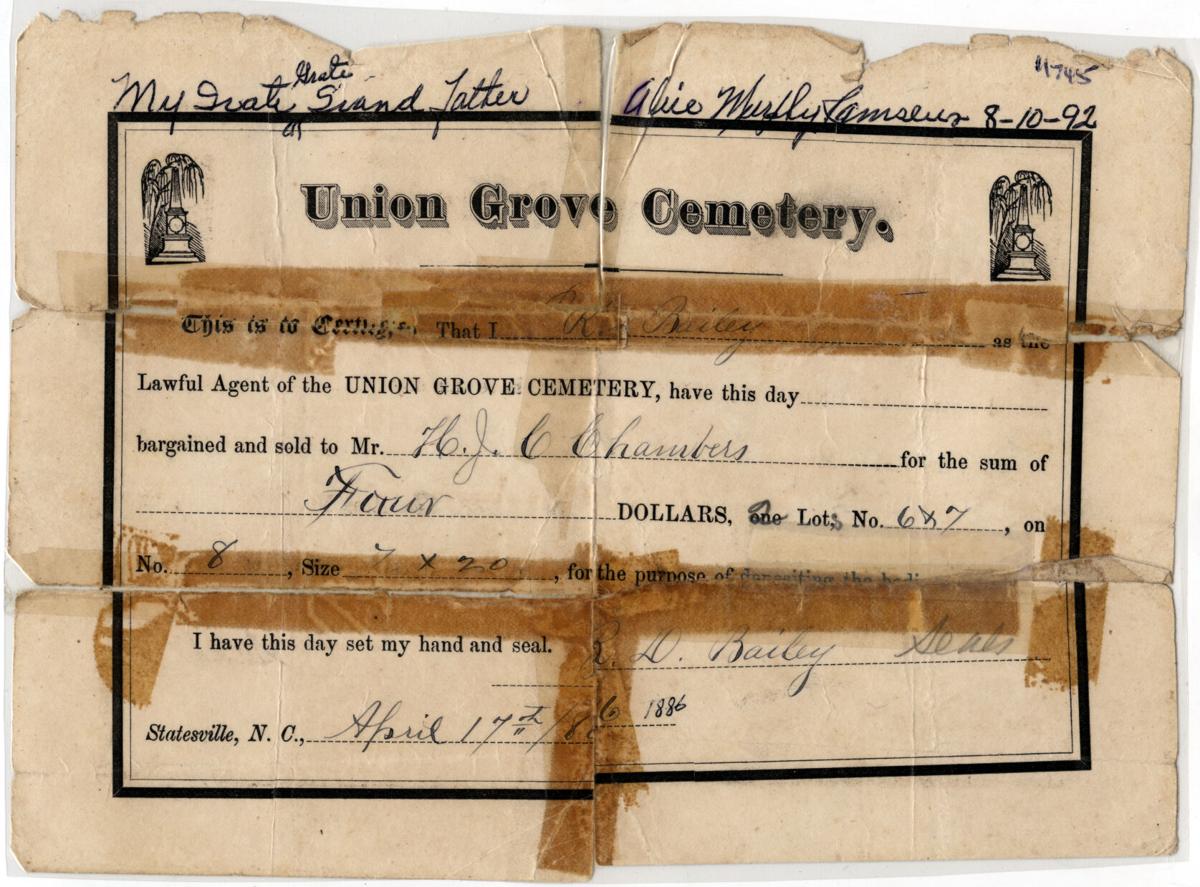 11745
My Grate Grate Grand Father Alice Murphy Ramseur 8-10-92
as
Union Grove Cemetery.
This is to Certify, That I R. D. Bailey as the
Lawful Agent of the UNION GROVE CEMETERY, have this day
bargained and sold to Mr. H. J. C Chambers for the sum of
Four DOLLARS, one Lots, No. 6&7, on
No. 8, Size 7 x 20, for the purpose of depositing the bodi
I have this day set my hand and seal. R. D. Bailey Seals
Statesville, N. C., April 17th 1886 1886